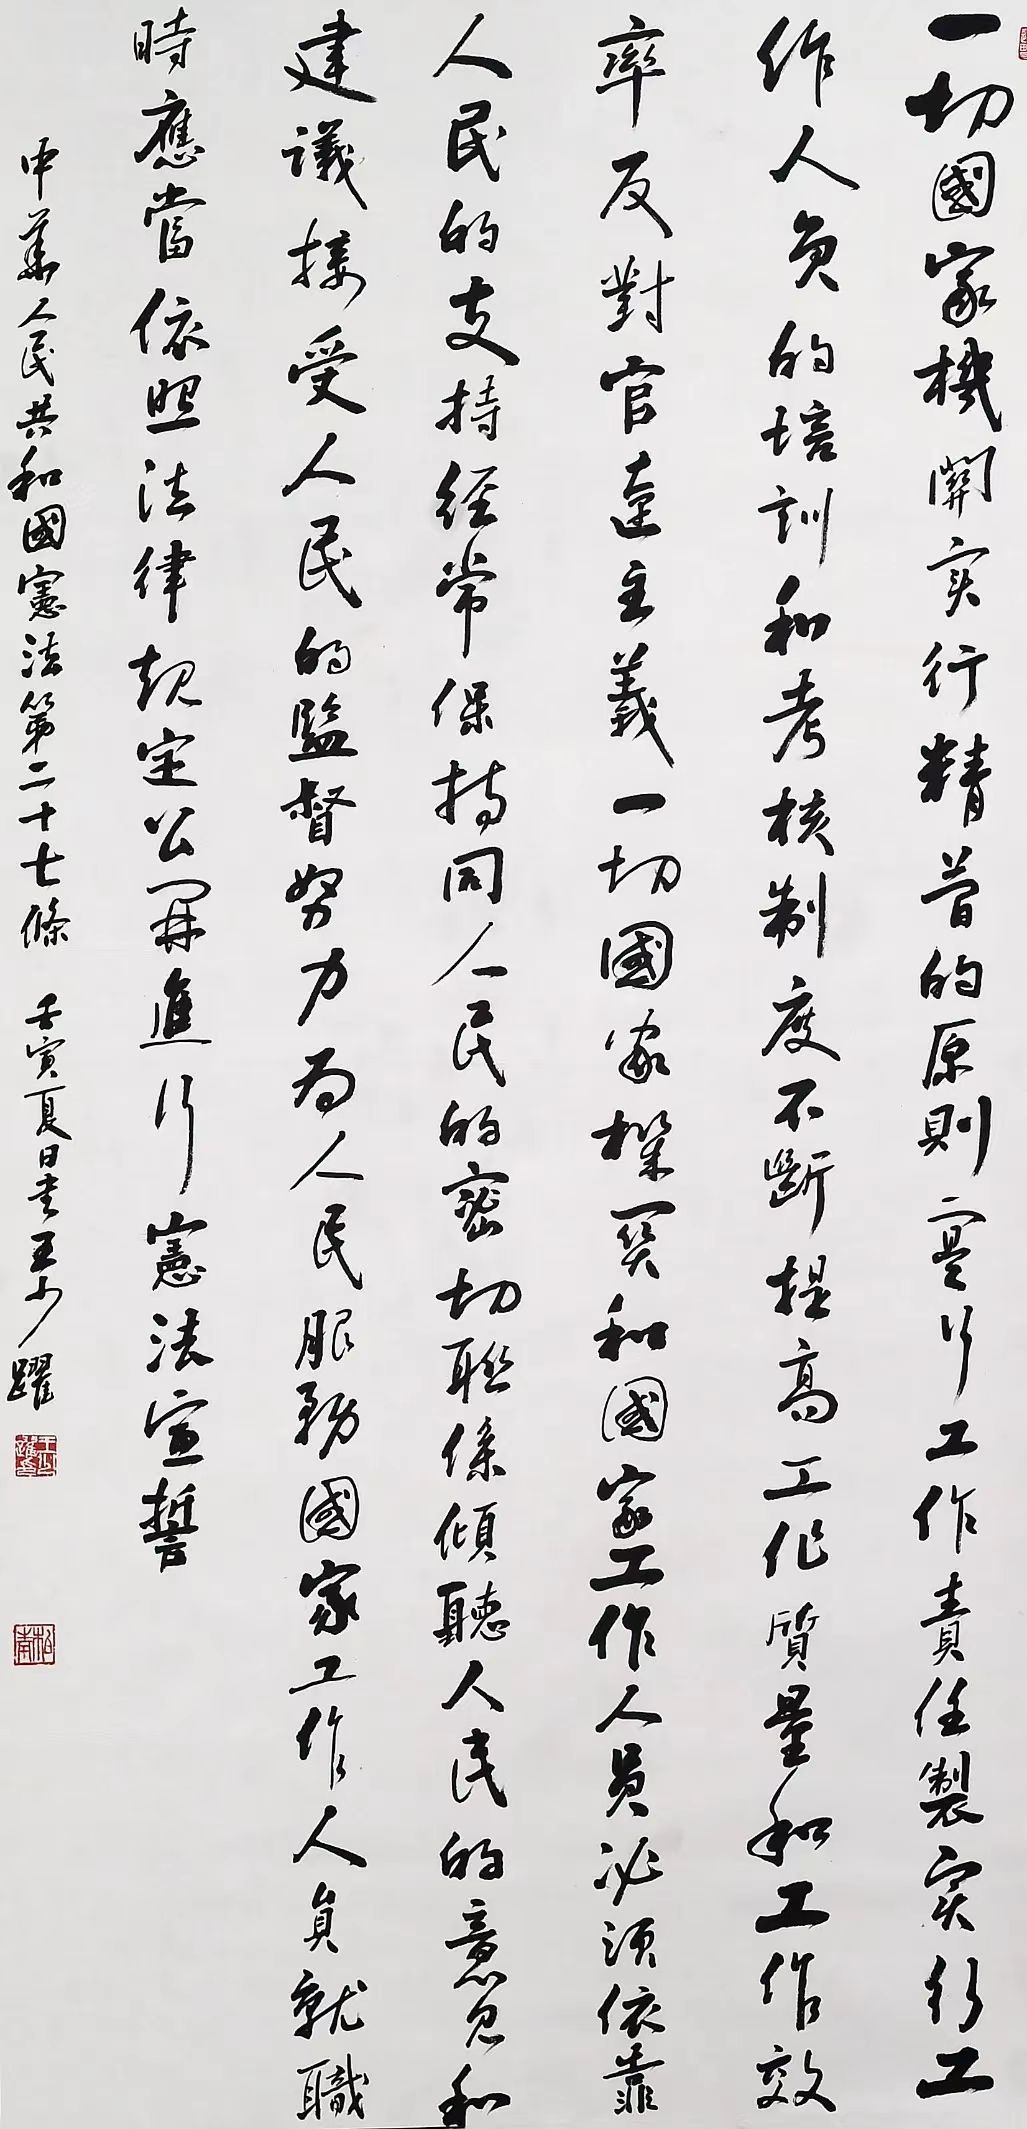 一切國家機關实行精簡的原則實行工作責任製实行工
作人員的培訓和考核制度不斷提高工作質量和工作效
率反對官僚主義一切國家機関和國家工作人員必須依靠
人民的支持經常保持同人民的密切聯係傾聽人民的意見和
建議接受人民的監督努力為人民服務國家工作人員就職
時應當依照法律規定公開進行憲法宣誓
中華人民共和國憲法第二十七條 壬寅夏日書王少躍